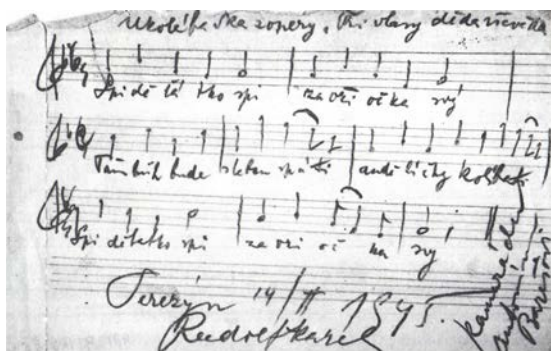 Ukolébavka z opery „Tři vlasy děda vševěda
Spi dě ťá tko spi za vři oč ka svý
Pán bůh bude s tebou spáti andělíčky
Spi děťátko spi za vři oč ka svý
Terezín 14/II 1945.
Rudolf Karel